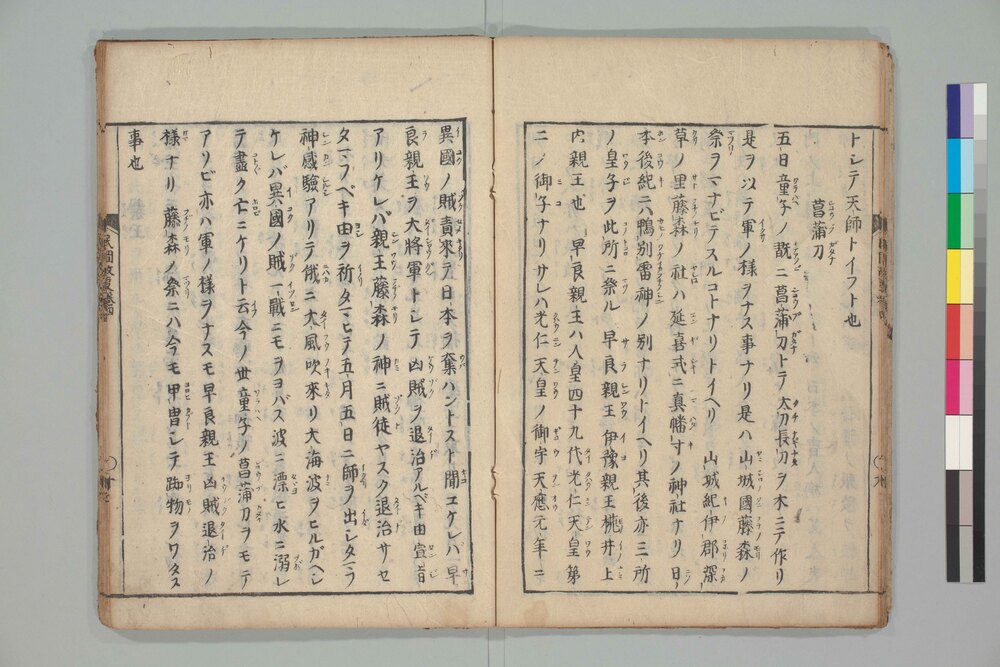 トシテ天師トイフト也
菖蒲刀
五日童子ノ戯ニ菖蒲刀トテ太刀長刀ヲ木ニテ作リ
是ヲ以テ軍ノ様ヲナス事ナリ是ハ山城國藤森ノ
祭ヲマナビテスルコトナリトイヘリ 山城紀伊郡深
草ノ里藤森ノ社ハ延喜式ニ真幡寸ノ神社ナリ日
本後紀ニ八鴨別雷神ノ別ナリトイヘリ其後亦三所
ノ皇子ヲ此所ニ祭ル 早良親王 伊豫親王 井上
内親王也 早良親王ハ人皇四十九代光仁天皇第
二ノ御子ナリサレハ光仁天皇ノ御宇天應元年ニ
異國ノ賊責來テ日本ヲ奪ハントスト聞エケレハ早
良親王ヲ大將軍トシテ凶賊ヲ退治アルベキ由宣旨
アリケレバ親王藤森ノ神ニ賊徒ヤスク退治サセ
タマフベキ由ヲ祈タマヒテ五月五日ニ師ヲ出シタマフ
神感驗アリテ俄ニ大風吹來リ大海波ヲヒルガヘシ
ケレバ異國ノ賊一戰ニモヲヨバス波ニ漂ヒ水ニ溺レ
テ盡ク亡ニケリト云今ノ世童子ノ菖蒲刀ヲモテ
アソビ亦ハ軍ノ様ヲナスモ早良親王凶賊退治ノ
様ナリ 藤森ノ祭ニハ今モ甲冑シテ 物ヲワタス
事也